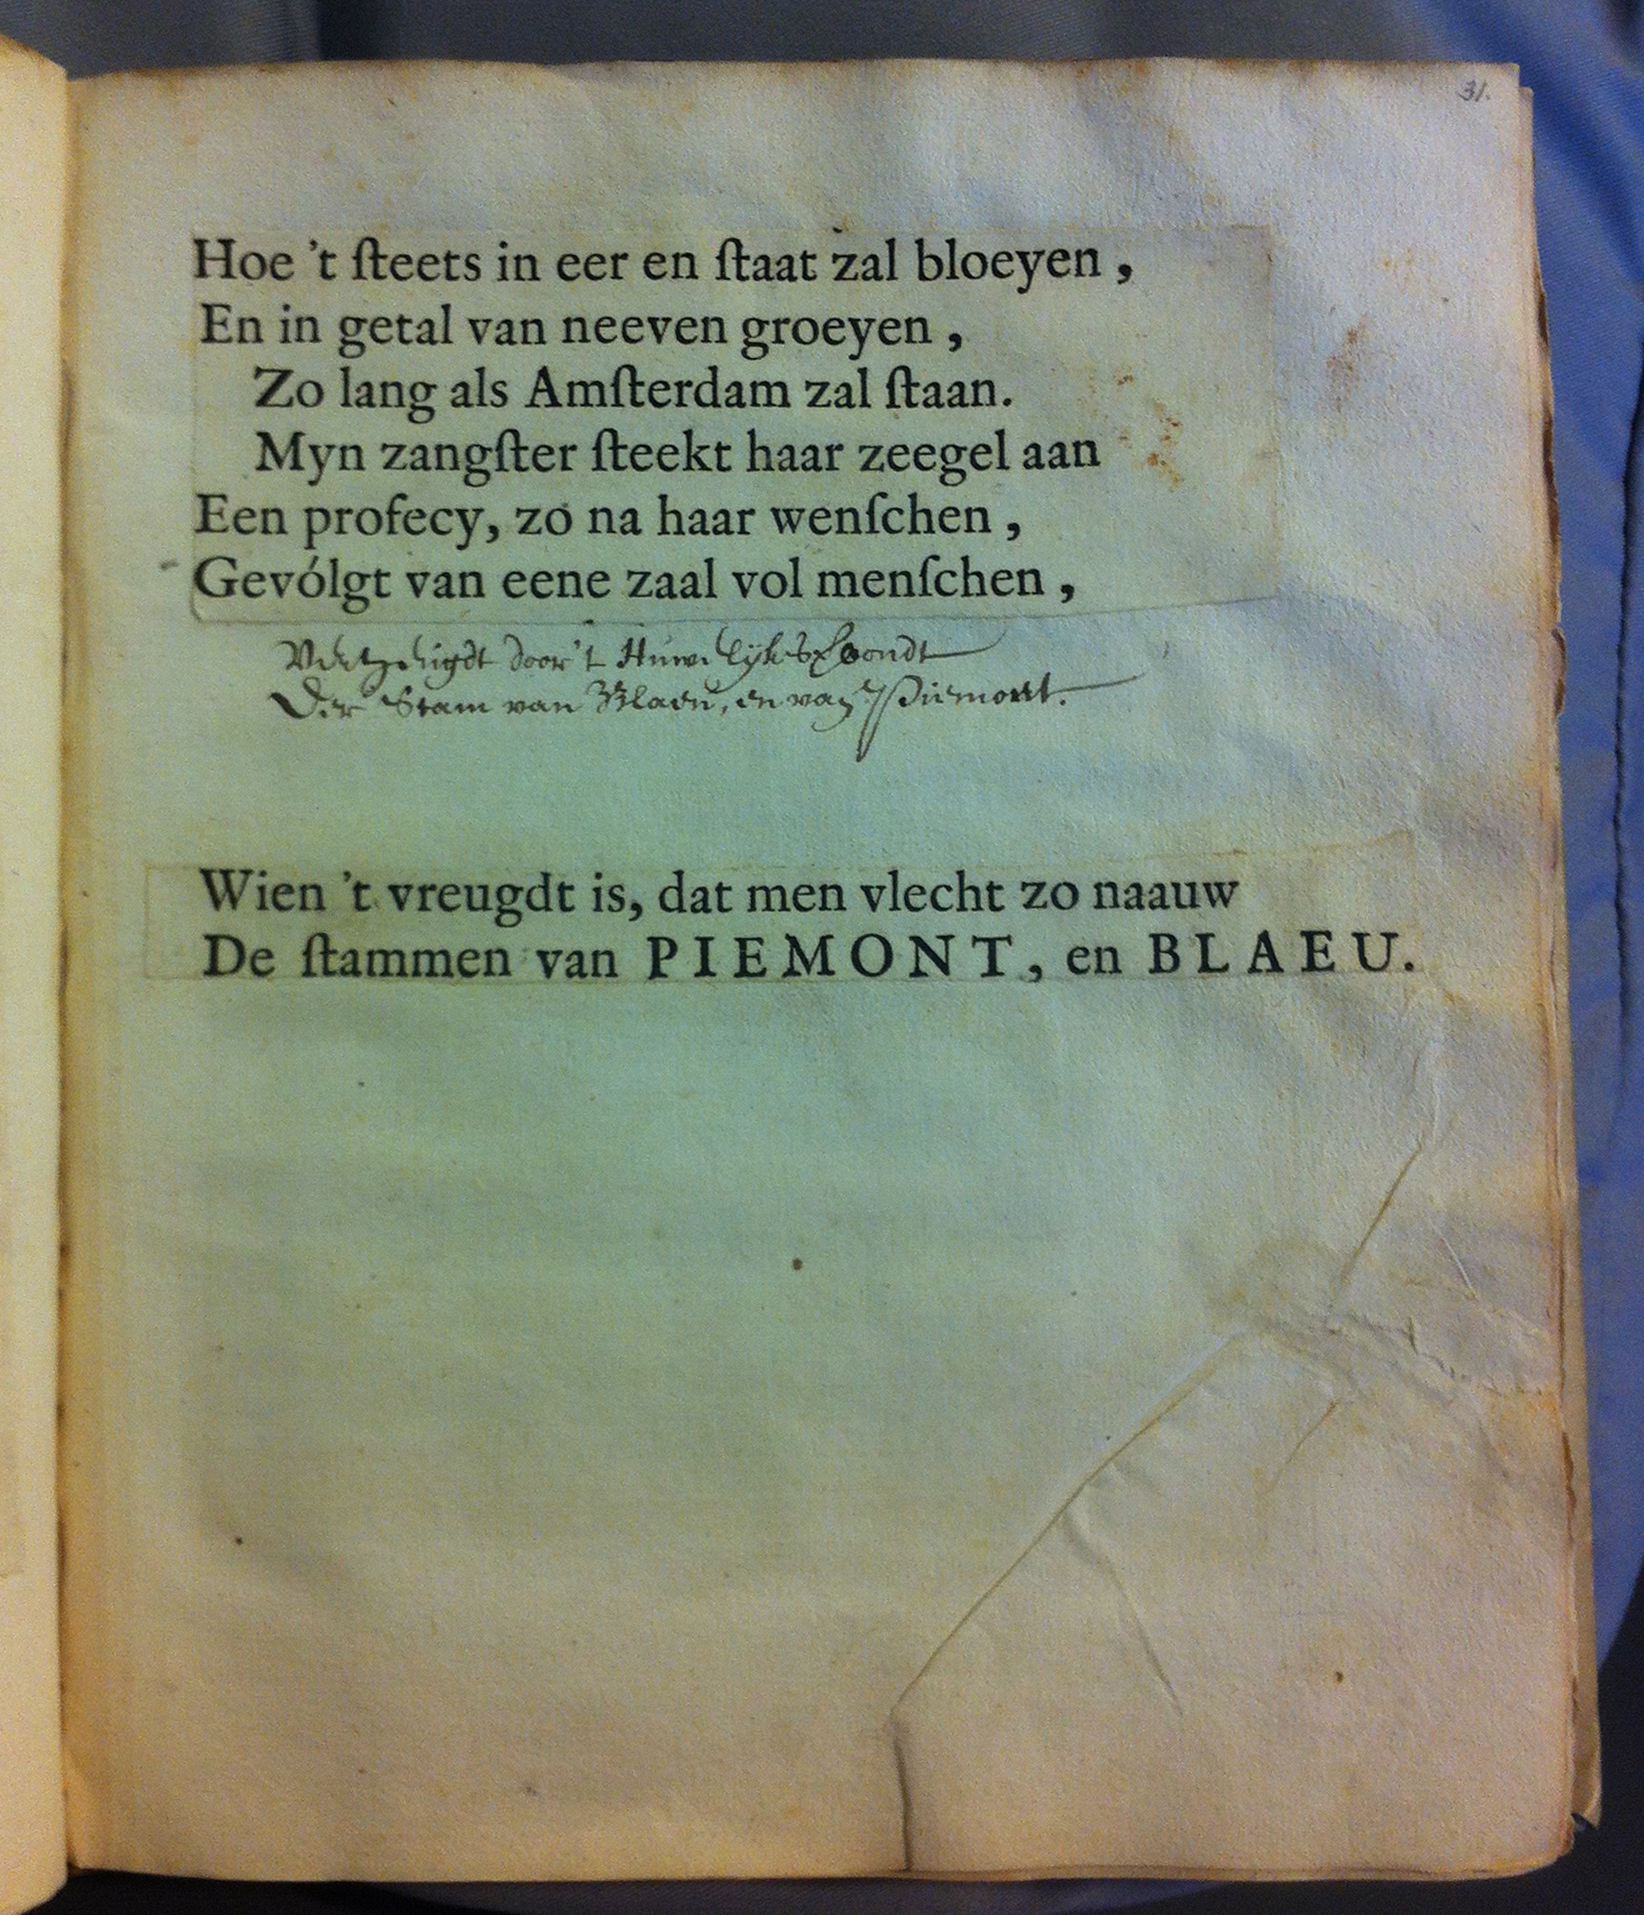 31.
Hoe 't ſteets in eer en ſtaat zal bloeyen,
En in getal van neeven groeyen,
Zo lang als Amſterdam zal ſtaan.
Myn zangſter ſteekt haar zeegel aan
Een profecy, zo na haar wenſchen,
Gevólgt van eene zaal vol menſchen,
door 't Huwelijks
Der Stam van Blaeu, en van Piemont.
Wien 't vreugdt is, dat men vlecht zo naauw
De ſtammen van PIEMONT, en BLAEU.